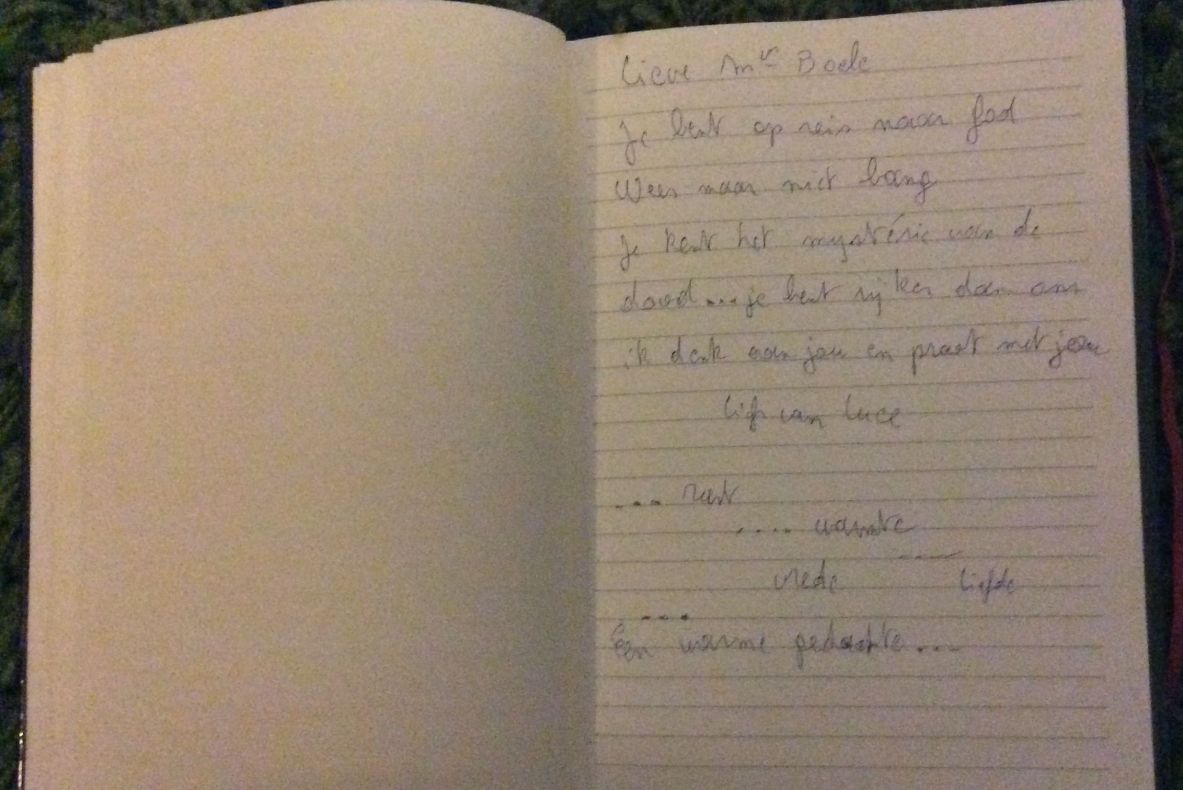 Lieve Mr Boele
Je bent op reis naar God
Wees maar niet bang
Je kent het mystérie van de
dood...je bent rijker dan ons
ik denk aan jou en praat met jou
liefs van Luce
... rust
.... warmte
....
vrede liefde
....
Een warme gedachte....